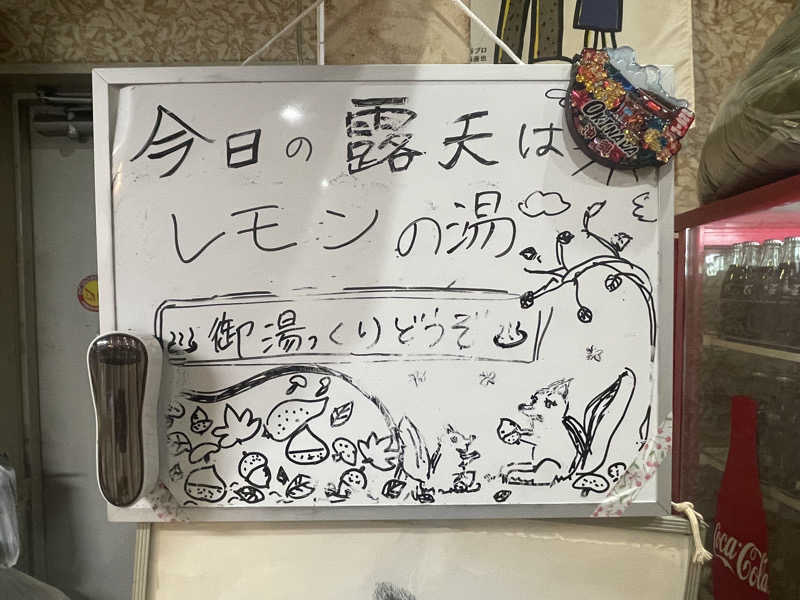 今日の露天は
レモンの湯
♨御湯っくりどうぞ♨
Coca-Cola